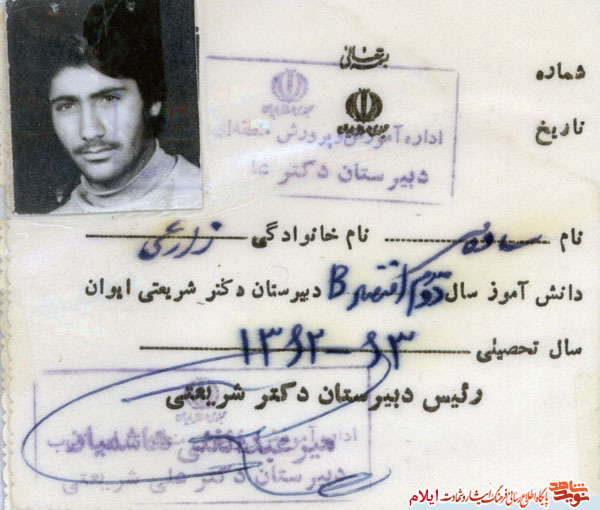 بسمه تعالی
شماره
تاریخ
اداره آموزش و پرورش منطقه‌ای
دبیرستان دکتر
نام نام خانوادگی زارعی
دانش آموز سال دوم اقتصاد B دبیرستان دکتر شریعتی ایوان
سال تحصیلی ۱۳۶۲-۶۳
رئیس دبیرستان دکتر شریعتی
دبیرستان دکتر علی شریعتی
نوید شاهد
پایگاه اطلاع رسانی فرهنگ ایثار و شهادت ایلام